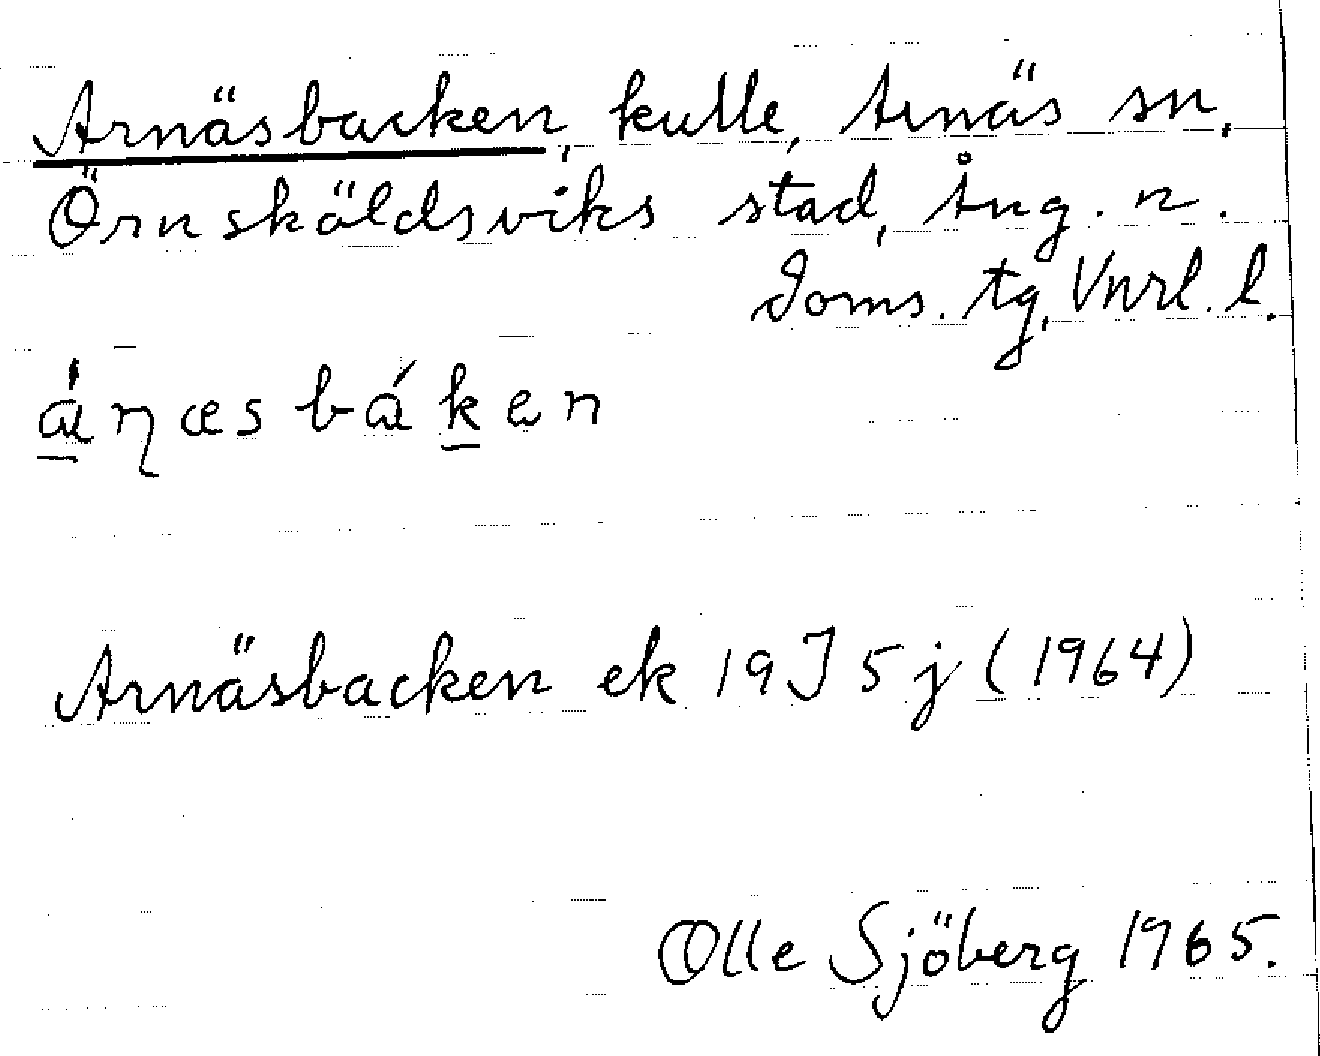 Arnäsbacken, kulle, Arnäs sn,
Örnsköldsviks stad, Ång. n.
Doms. tg, Vnrl. l.
áɳæsbáken
Arnäsbacken ek 19J 5j (1964)
Olle Sjöberg 1965.